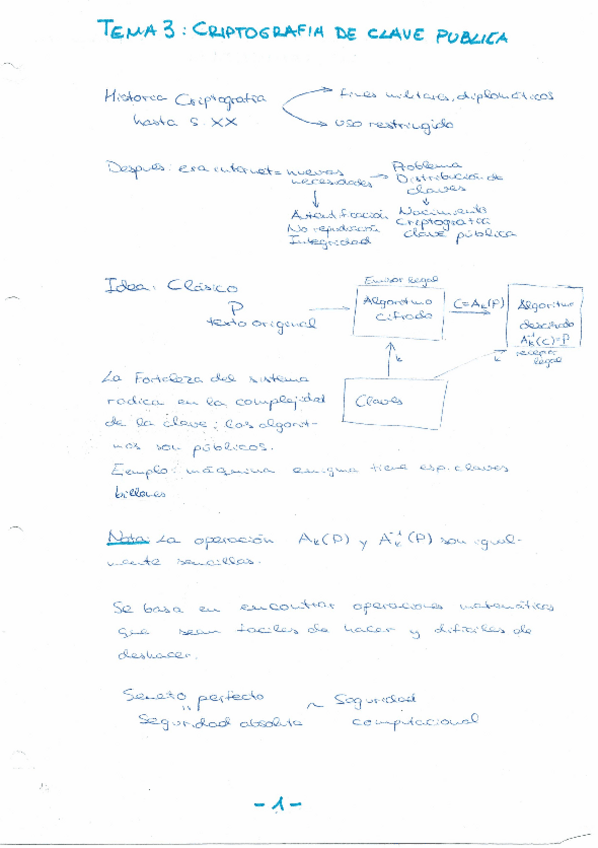 TEMA 3: CRIPTOGRAFIA DE CLAVE PUBLICA
Historia Criptografia → fines militares, diplomáticos
hasta s. XX → uso restringido
Después: era internet = nuevas necesidades → Problema Distribución de claves
↓ ↓
Autentificación Nacimiento
No repudiación Criptografía
Integridad clave pública
Idea: Clásico
P
texto original
Emisor legal
Algoritmo
cifrado
C=Aₖ(P)
Algoritmo
descifrado
Aₖ⁻¹(C)=P
receptor
legal
k
k
Claves
La Fortaleza del sistema
radica en la complejidad
de la clave; los algorit-
mos son públicos.
Ejemplo: máquina enigma tiene esp. claves
billones
Nota: La operación Aₖ(P) y Aₖ⁻¹(P) son igual-
mente sencillas.
Se basa en encontrar operaciones matemáticas
que sean faciles de hacer y dificiles de
deshacer.
Secreto perfecto ~ Seguridad
" Seguridad absoluta computacional
-1-